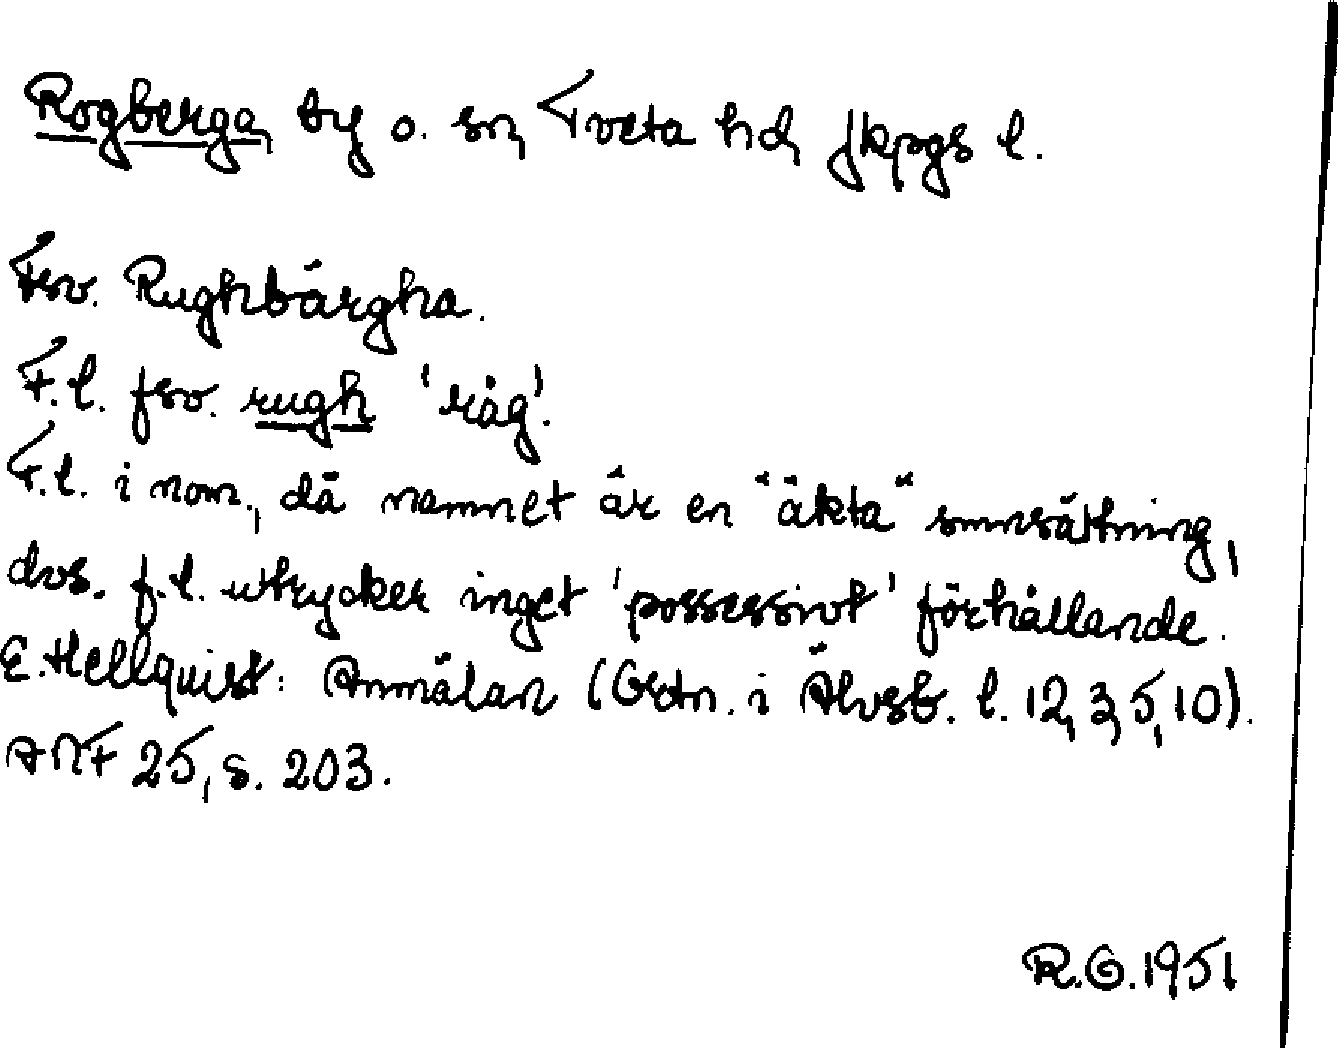 Rogberga, by o. sn, Tveta hd, Jkpgs l.
Fsv. Rughbärgha.
F.l. fsv. rugh 'råg'.
F.l. i nom., då namnet är en "äkta" smnsättning,
dvs. f.l. uttrycker inget 'possessivt' förhållande.
E. Hellquist: Anmälan (Ortn. i Älvsb. l. 12, 3, 5, 10).
ANF 25, s. 203.
R.G. 1951